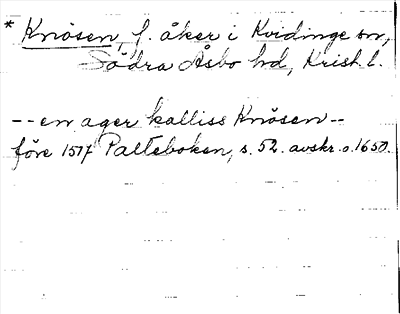 * Knösen, f. åker i Kvidinge sn,
Södra Åsbo hd, Krist. l.
-- en ager kalliss Knösen --
före 1517 Palteboken, s. 52. avskr. o. 1650.